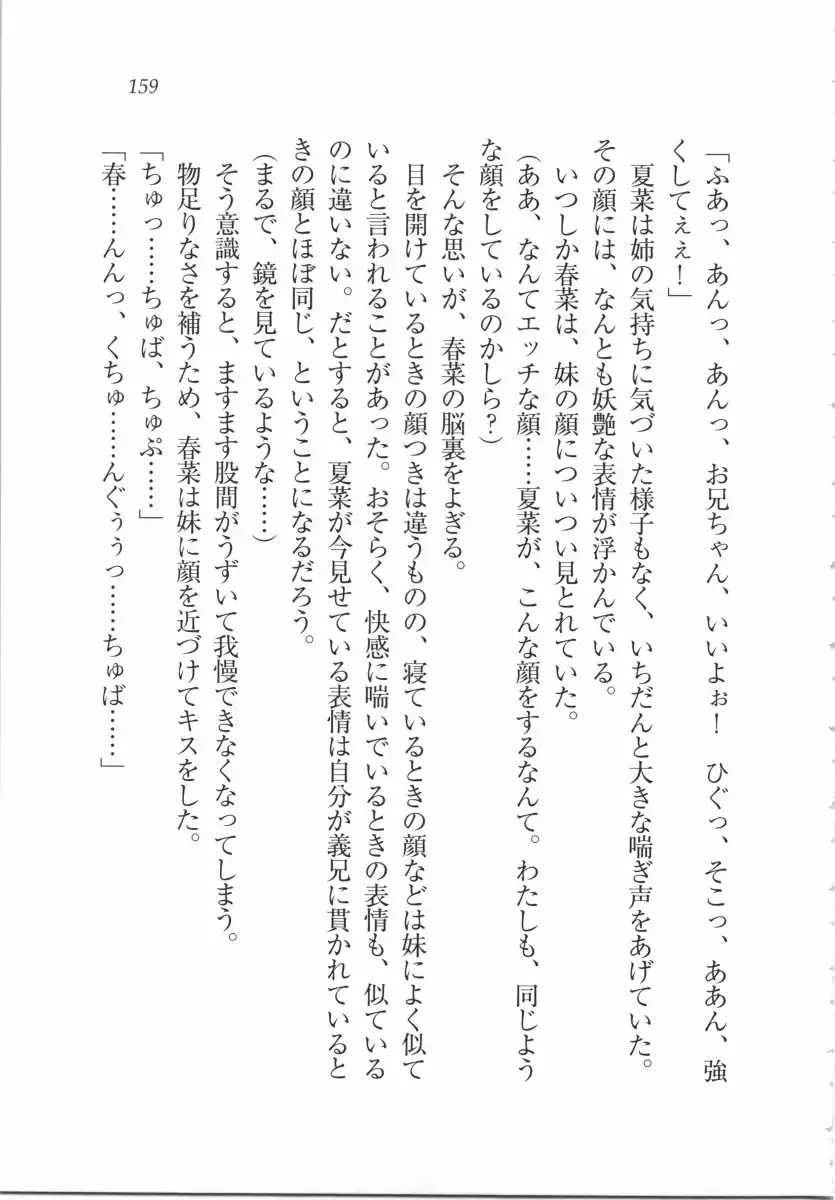 159
「ふあっ、あんっ、あんっ、お兄ちゃん、いいよぉ！　ひぐっ、そこっ、ああん、強
くしてぇぇ！」
夏菜は姉の気持ちに気づいた様子もなく、いちだんと大きな喘ぎ声をあげていた。
その顔には、なんとも妖艶な表情が浮かんでいる。
いつしか春菜は、妹の顔についつい見とれていた。
（ああ、なんてエッチな顔……夏菜が、こんな顔をするなんて。わたしも、同じよう
な顔をしているのかしら？）
そんな思いが、春菜の脳裏をよぎる。
目を開けているときの顔つきは違うものの、寝ているときの顔などは妹によく似て
いると言われることがあった。おそらく、快感に喘いでいるときの表情も、似ている
のに違いない。だとすると、夏菜が今見せている表情は自分が義兄に貫かれていると
きの顔とほぼ同じ、ということになるだろう。
（まるで、鏡を見ているような……）
そう意識すると、ますます股間がうずいて我慢できなくなってしまう。
物足りなさを補うため、春菜は妹に顔を近づけてキスをした。
「ちゅっ……ちゅば、ちゅぷ……」
「春……んんっ、くちゅ……んぐぅぅっ……ちゅば……」